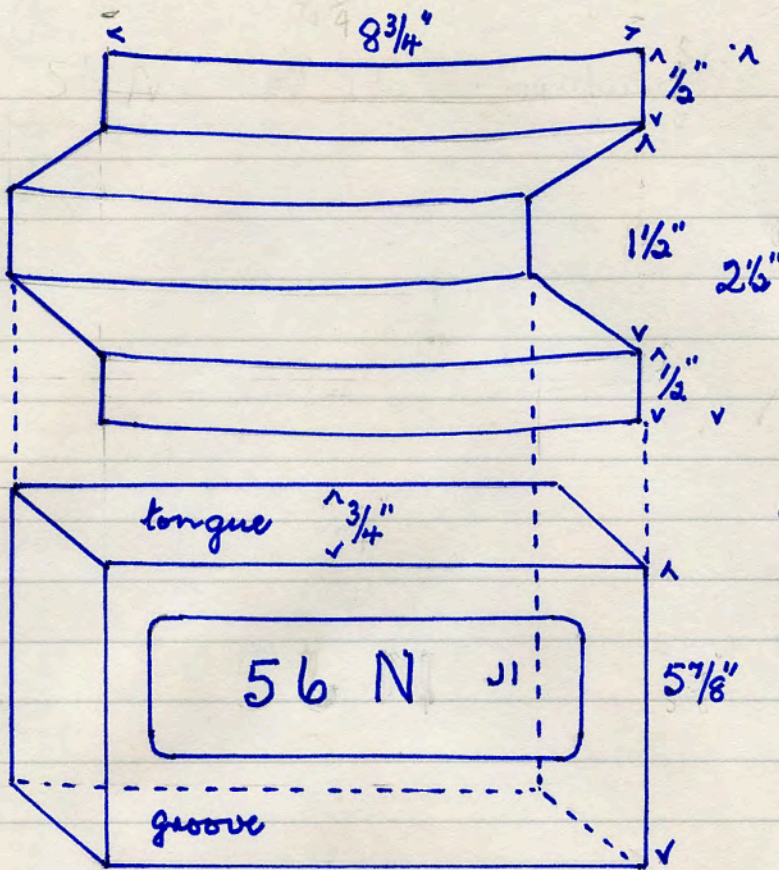 8 3/4"
1/2"
1 1/2"
2 1/2"
1/2"
tongue 3/4"
56 N J1
5 7/8"
groove